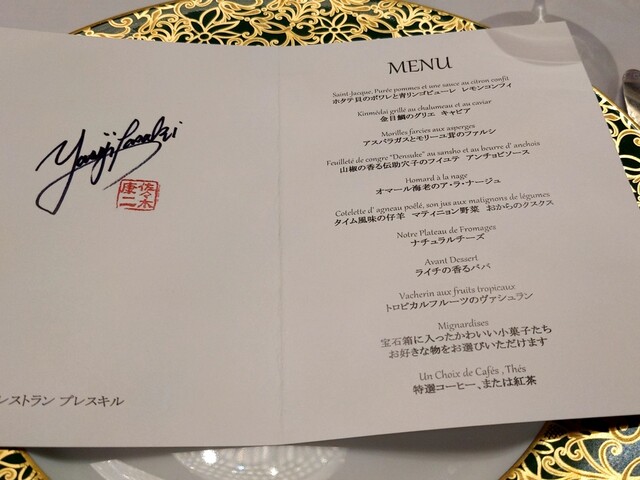 佐々木
康二
レストラン プレスキル
MENU
Saint-Jacque, Purée pommes et une sauce au citron confit
ホタテ貝のポワレと青リンゴピューレ レモンコンフィ
Kinmédai grillé au chalumeau et au caviar
金目鯛のグリエ キャビア
Morilles farcies aux asperges
アスパラガスとモリーユ茸のファルシ
Feuilleté de congre "Densuke" au sansho et au beurre d' anchois
山椒の香る伝助穴子のフイユテ アンチョビソース
Homard à la nage
オマール海老のア・ラ・ナージュ
Cotelette d' agneau poêlé, son jus aux matignons de légumes
タイム風味の仔羊 マティニョン野菜 おからのクスクス
Notre Plateau de Fromages
ナチュラルチーズ
Avant Dessert
ライチの香るババ
Vacherin aux fruits tropicaux
トロピカルフルーツのヴァシュラン
Mignardises
宝石箱に入ったかわいい小菓子たち
お好きな物をお選びいただけます
Un Choix de Cafés , Thés
特選コーヒー、または紅茶